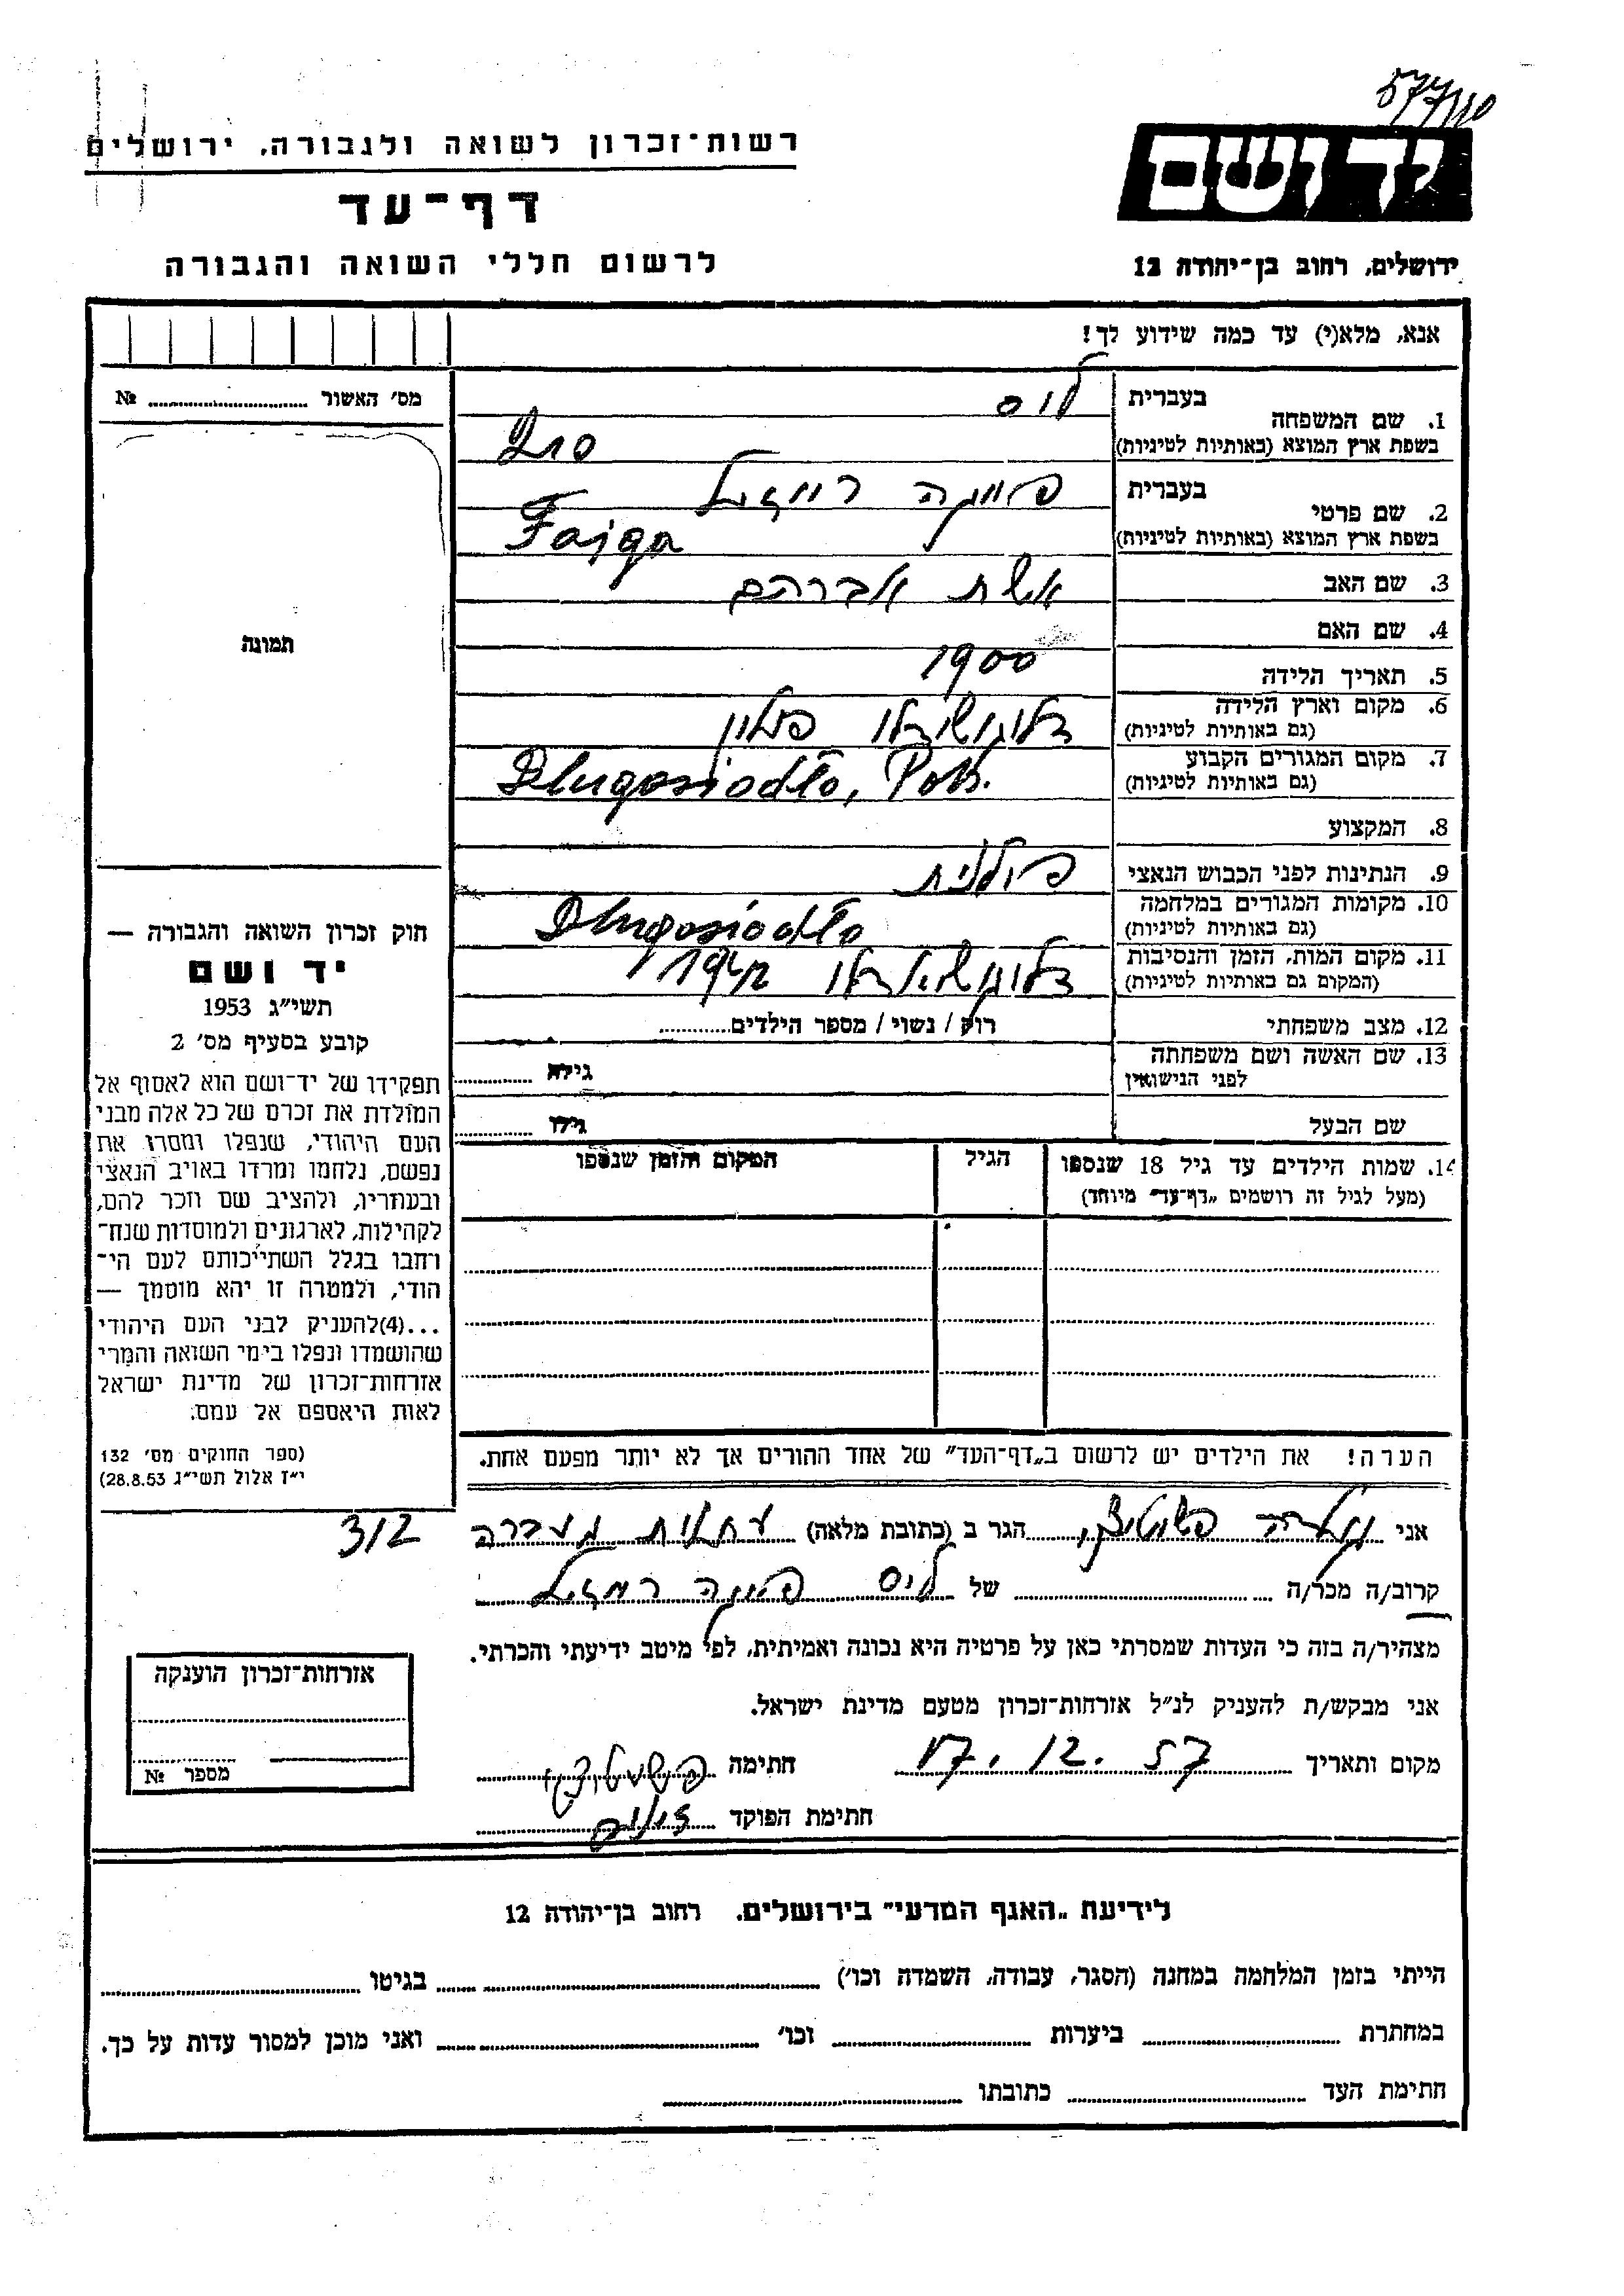 577/110
רשות־זכרון לשואה ולגבורה, ירושלים
יד ושם
דף־עד
לרשום חללי השואה והגבורה
ירושלים, רחוב בן־יהודה 12
אנא, מלא(י) עד כמה שידוע לך!
מס׳ האשור № 
1. שם המשפחה
בעברית
בשפת ארץ המוצא (באותיות לטיניות)
2. שם פרטי
בעברית פייגה רייזל
בשפת ארץ המוצא (באותיות לטיניות) Fajga
3. שם האב אשת אברהם
4. שם האם
5. תאריך הלידה 1900
6. מקום וארץ הלידה פולין
(גם באותיות לטיניות)
7. מקום המגורים הקבוע Dlugosiodło, Pols.
(גם באותיות לטיניות)
8. המקצוע
9. הנתינות לפני הכבוש הנאצי פולנית
10. מקומות המגורים במלחמה Dlugosiodło
(גם באותיות לטיניות)
11. מקום המות, הזמן והנסיבות
(המקום גם באותיות לטיניות)
12. מצב משפחתי רוק / נשוי / מספר הילדים
13. שם האשה ושם משפחתה
לפני הנישואין
גילה
שם הבעל גילו
14. שמות הילדים עד גיל 18 שנספו הגיל המקום והזמן שנספו
(מעל לגיל זה רושמים „דף־עד״ מיוחד)
תמונה
חוק זכרון השואה והגבורה —
יד ושם
תשי״ג 1953
קובע בסעיף מס׳ 2
תפקידו של יד־ושם הוא לאסוף אל
המולדת את זכרם של כל אלה מבני
העם היהודי, שנפלו ומסרו את
נפשם, נלחמו ומרדו באויב הנאצי
ובעוזריו, ולהציב שם וזכר להם,
לקהילות, לארגונים ולמוסדות שנח־
רחבו בגלל השתייכותם לעם הי־
הודי, ולמטרה זו יהא מוסמך —
...(4)להעניק לבני העם היהודי
שהושמדו ונפלו בימי השואה והמרי
אזרחות־זכרון של מדינת ישראל
לאות היאספם אל עמם.
(ספר החוקים מס׳ 132
י״ז אלול תשי״ג 28.8.53)
הערה! את הילדים יש לרשום ב„דף־העד״ של אחד ההורים אך לא יותר מפעם אחת.
אני הגר ב (כתובת מלאה) מעברה 312
קרוב/ה מכר/ה של פייגה רייזל
מצהיר/ה בזה כי העדות שמסרתי כאן על פרטיה היא נכונה ואמיתית, לפי מיטב ידיעתי והכרתי.
אני מבקש/ת להעניק לנ״ל אזרחות־זכרון מטעם מדינת ישראל.
מקום ותאריך 17.12.57 חתימה
חתימת הפוקד
אזרחות־זכרון הוענקה
מספר №
לידיעת „האגף המדעי״ בירושלים. רחוב בן־יהודה 12
הייתי בזמן המלחמה במחנה (הסגר, עבודה, השמדה וכו׳) בגיטו
במחתרת ביערות וכו׳ ואני מוכן למסור עדות על כך.
חתימת העד כתובתו